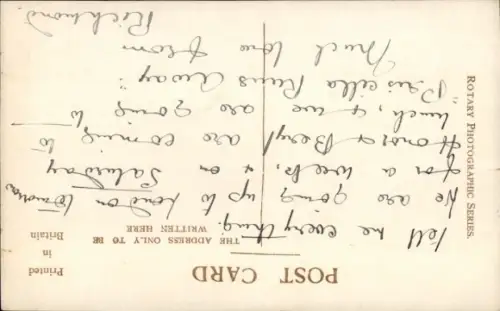 POST CARD
Printed
in
Britain
THE ADDRESS ONLY TO BE
WRITTEN HERE
ROTARY PHOTOGRAPHIC SERIES.
Tell me everything.
We are going up to London tomorrow
for a week, & on Saturday
Honor & Beryl are coming to
lunch, & we are going to
"Priscilla Runs Away".
Much love from
Richmond.